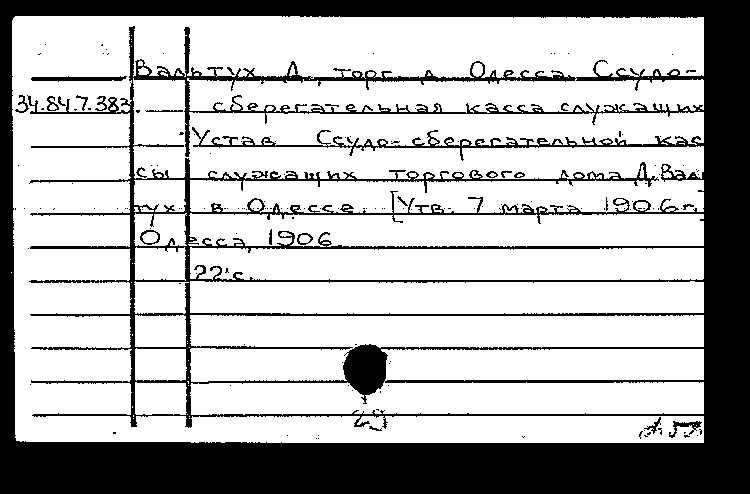 Вальтух, Д., торг. д. Одесса. Ссудо-
34.84.7.383. сберегательная касса служащих
Устав Ссудо-сберегательной кас
сы служащих торгового дома Д. Валь
тух в Одессе. [Утв. 7 марта 1906 г.]
Одесса, 1906.
22 с.
29